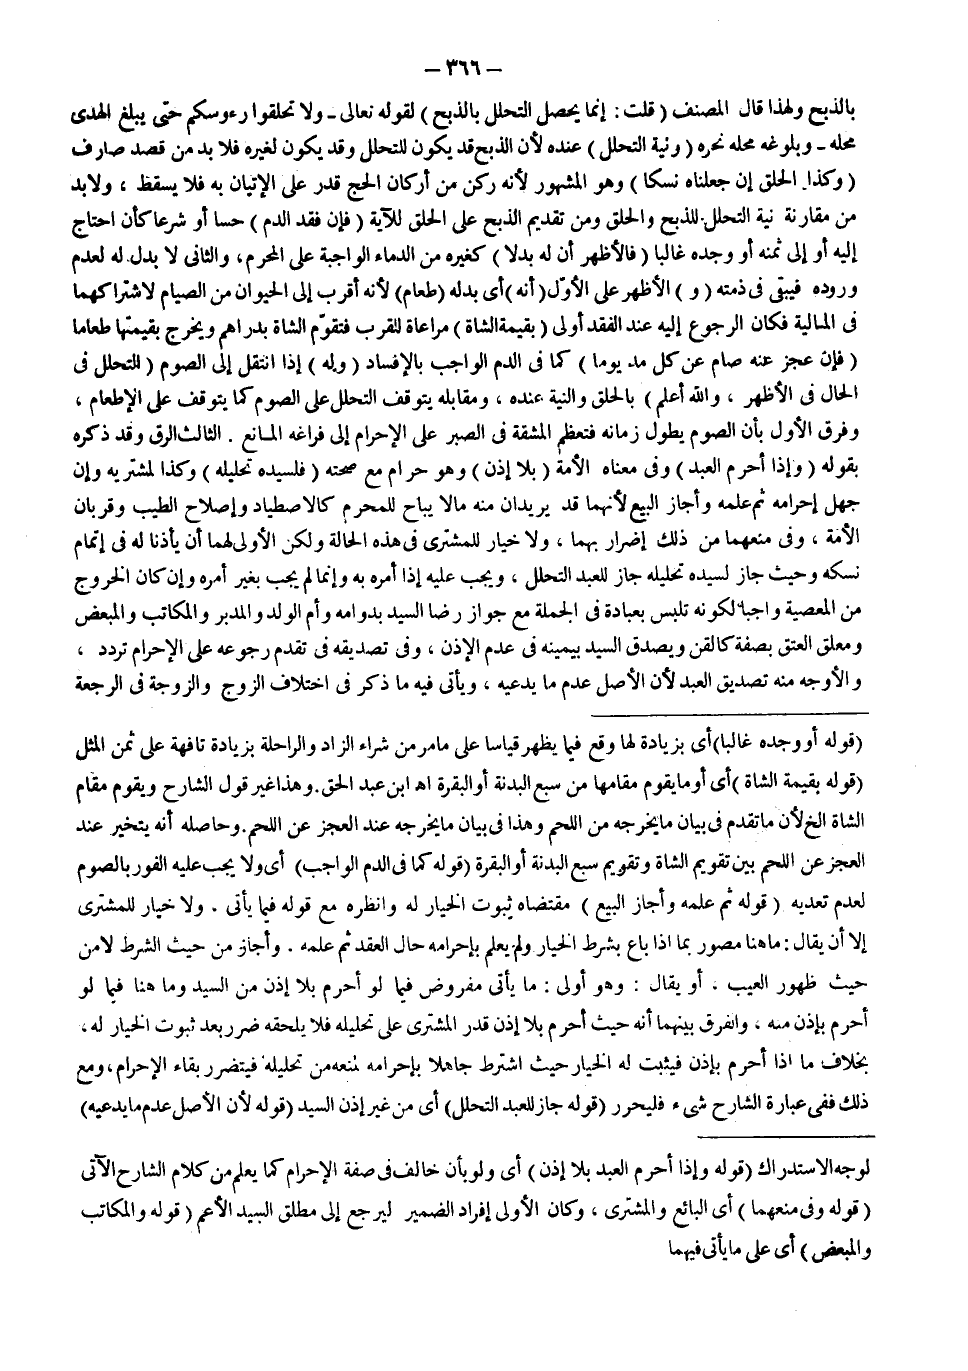 – ٣٦٦ –
بالذبح ولهذا قال المصنف ( قلت : إنما يحصل التحلل بالذبح ) لقوله تعالى ـ ولا تحلقوا رءوسكم حتى يبلغ الهدى
محله ـ وبلوغه محله نحره ( ونية التحلل ) عنده لأن الذبح قد يكون للتحلل وقد يكون لغيره فلا بد من قصد صارف
( وكذا الحلق إن جعلناه نسكا ) وهو المشهور لأنه ركن من أركان الحج قدر على الإتيان به فلا يسقط ، ولابد
من مقارنة نية التحلل للذبح والحلق ومن تقديم الذبح على الحلق للآية ( فإن فقد الدم ) حسا أو شرعا كأن احتاج
إليه أو إلى ثمنه أو وجده غالبا ( فالأظهر أن له بدلا ) كغيره من الدماء الواجبة على المحرم ، والثانى لا بدل له لعدم
وروده فيبقى فى ذمته ( و ) الأظهر على الأوّل ( أنه ) أى بدله ( طعام ) لأنه أقرب إلى الحيوان من الصيام لاشتراكهما
فى المالية فكان الرجوع إليه عند الفقد أولى ( بقيمة الشاة ) مراعاة للقرب فتقوّم الشاة بدراهم ويخرج بقيمتها طعاما
( فإن عجز عنه صام عن كل مد يوما ) كما فى الدم الواجب بالإفساد ( وله ) إذا انتقل إلى الصوم ( التحلل فى
الحال فى الأظهر ، والله أعلم ) بالحلق والنية عنده ، ومقابله يتوقف التحلل على الصوم كما يتوقف على الإطعام ،
وفرق الأول بأن الصوم يطول زمانه فتعظم المشقة فى الصبر على الإحرام إلى فراغه المانع . الثالث الرق وقد ذكره
بقوله ( وإذا أحرم العبد ) وفى معناه الأمة ( بلا إذن ) وهو حرام مع صحته ( فلسيده تحليله ) وكذا لمشتريه وإن
جهل إحرامه ثم علمه وأجاز البيع لأنهما قد يريدان منه مالا يباح للمحرم كالاصطياد وإصلاح الطيب وقربان
الأمة ، وفى منعهما من ذلك إضرار بهما ، ولا خيار للمشترى فى هذه الحالة ولكن الأولى لهما أن يأذنا له فى إتمام
نسكه وحيث جاز لسيده تحليله جاز للعبد التحلل ، ويجب عليه إذا أمره به وإنما لم يجب بغير أمره وإن كان الخروج
من المعصية واجبا لكونه تلبس بعبادة فى الجملة مع جواز رضا السيد بدوامه وأم الولد والمدبر والمكاتب والمبعض
ومعلق العتق بصفة كالقن ويصدق السيد بيمينه فى عدم الإذن ، وفى تصديقه فى تقدم رجوعه على الإحرام تردد ،
والأوجه منه تصديق العبد لأن الأصل عدم ما يدعيه ، ويأتى فيه ما ذكر فى اختلاف الزوج والزوجة فى الرجعة
(قوله أو وجده غالبا) أى بزيادة لها وقع فيما يظهر قياسا على مامر من شراء الزاد والراحلة بزيادة تافهة على ثمن المثل
(قوله بقيمة الشاة ) أى أو مايقوم مقامها من سبع البدنة أو البقرة اه ابن عبد الحق . وهذا غير قول الشارح ويقوم مقام
الشاة الخ لأن ماتقدم فى بيان مايخرجه من اللحم وهذا فى بيان مايخرجه عند العجز عن اللحم . وحاصله أنه يتخير عند
العجز عن اللحم بين تقويم الشاة وتقويم سبع البدنة أو البقرة (قوله كما فى الدم الواجب) أى ولا يجب عليه الفور بالصوم
لعدم تعديه ( قوله ثم علمه وأجاز البيع ) مقتضاه ثبوت الخيار له وانظره مع قوله فيما يأتى . ولا خيار للمشترى
إلا أن يقال : ماهنا مصور بما اذا باع بشرط الخيار ولم يعلم بإحرامه حال العقد ثم علمه . وأجاز من حيث الشرط لامن
حيث ظهور العيب . أو يقال : وهو أولى : ما يأتى مفروض فيما لو أحرم بلا إذن من السيد وما هنا فيما لو
أحرم بإذن منه ، والفرق بينهما أنه حيث أحرم بلا إذن قدر المشترى على تحليله فلا يلحقه ضرر بعد ثبوت الخيار له ،
بخلاف ما اذا أحرم بإذن فيثبت له الخيار حيث اشترط جاهلا بإحرامه لمنعه من تحليله فيتضرر بقاء الإحرام ، ومع
ذلك ففى عبارة الشارح شىء فليحرر (قوله جاز للعبد التحلل) أى من غير إذن السيد (قوله لأن الأصل عدم مايدعيه)
لوجه الاستدراك (قوله وإذا أحرم العبد بلا إذن ) أى ولو بأن خالف فى صفة الإحرام كما يعلم من كلام الشارح الآتى
( قوله وفى منعهما ) أى البائع والمشترى ، وكان الأولى إفراد الضمير ليرجع إلى مطلق السيد الأعم ( قوله والمكاتب
والمبعض ) أى على مايأتى فيهما